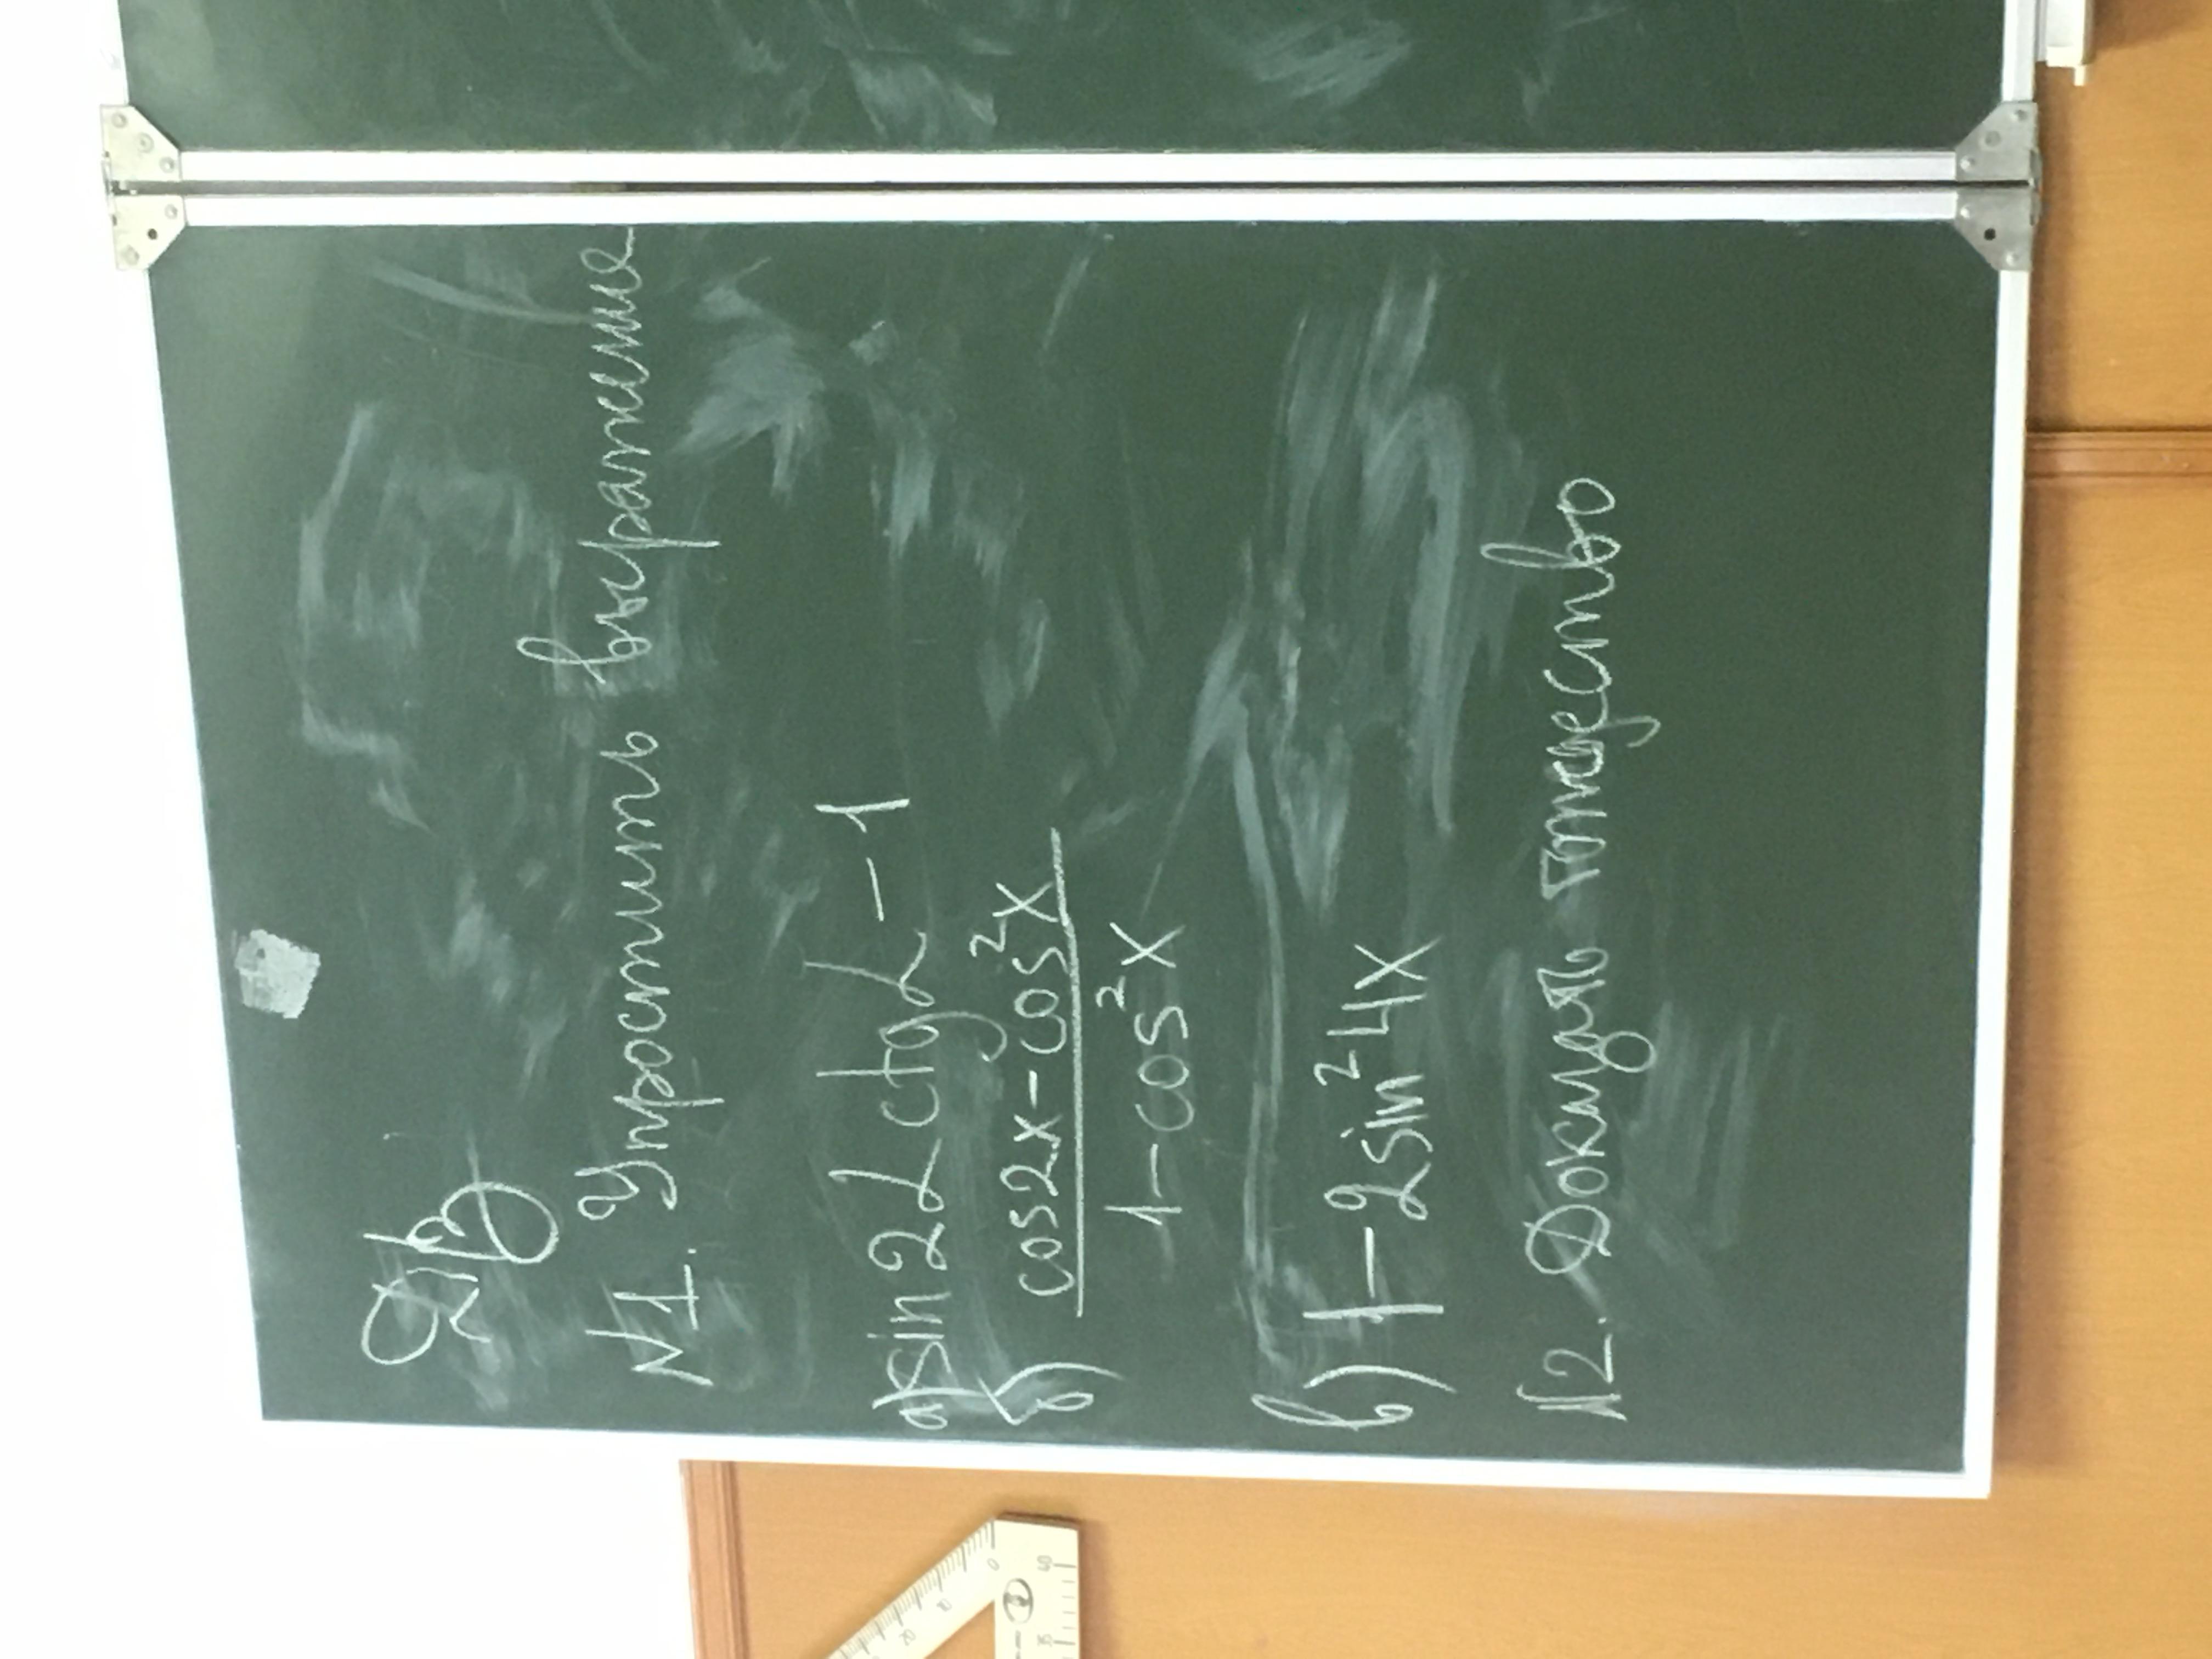 Д/З
N1. Упростить выражение
а) sin2α ctgα - 1
б) cos2x - cos²x
1 - cos²x
в) 1 - 2sin²4x
N2. Доказать тождество